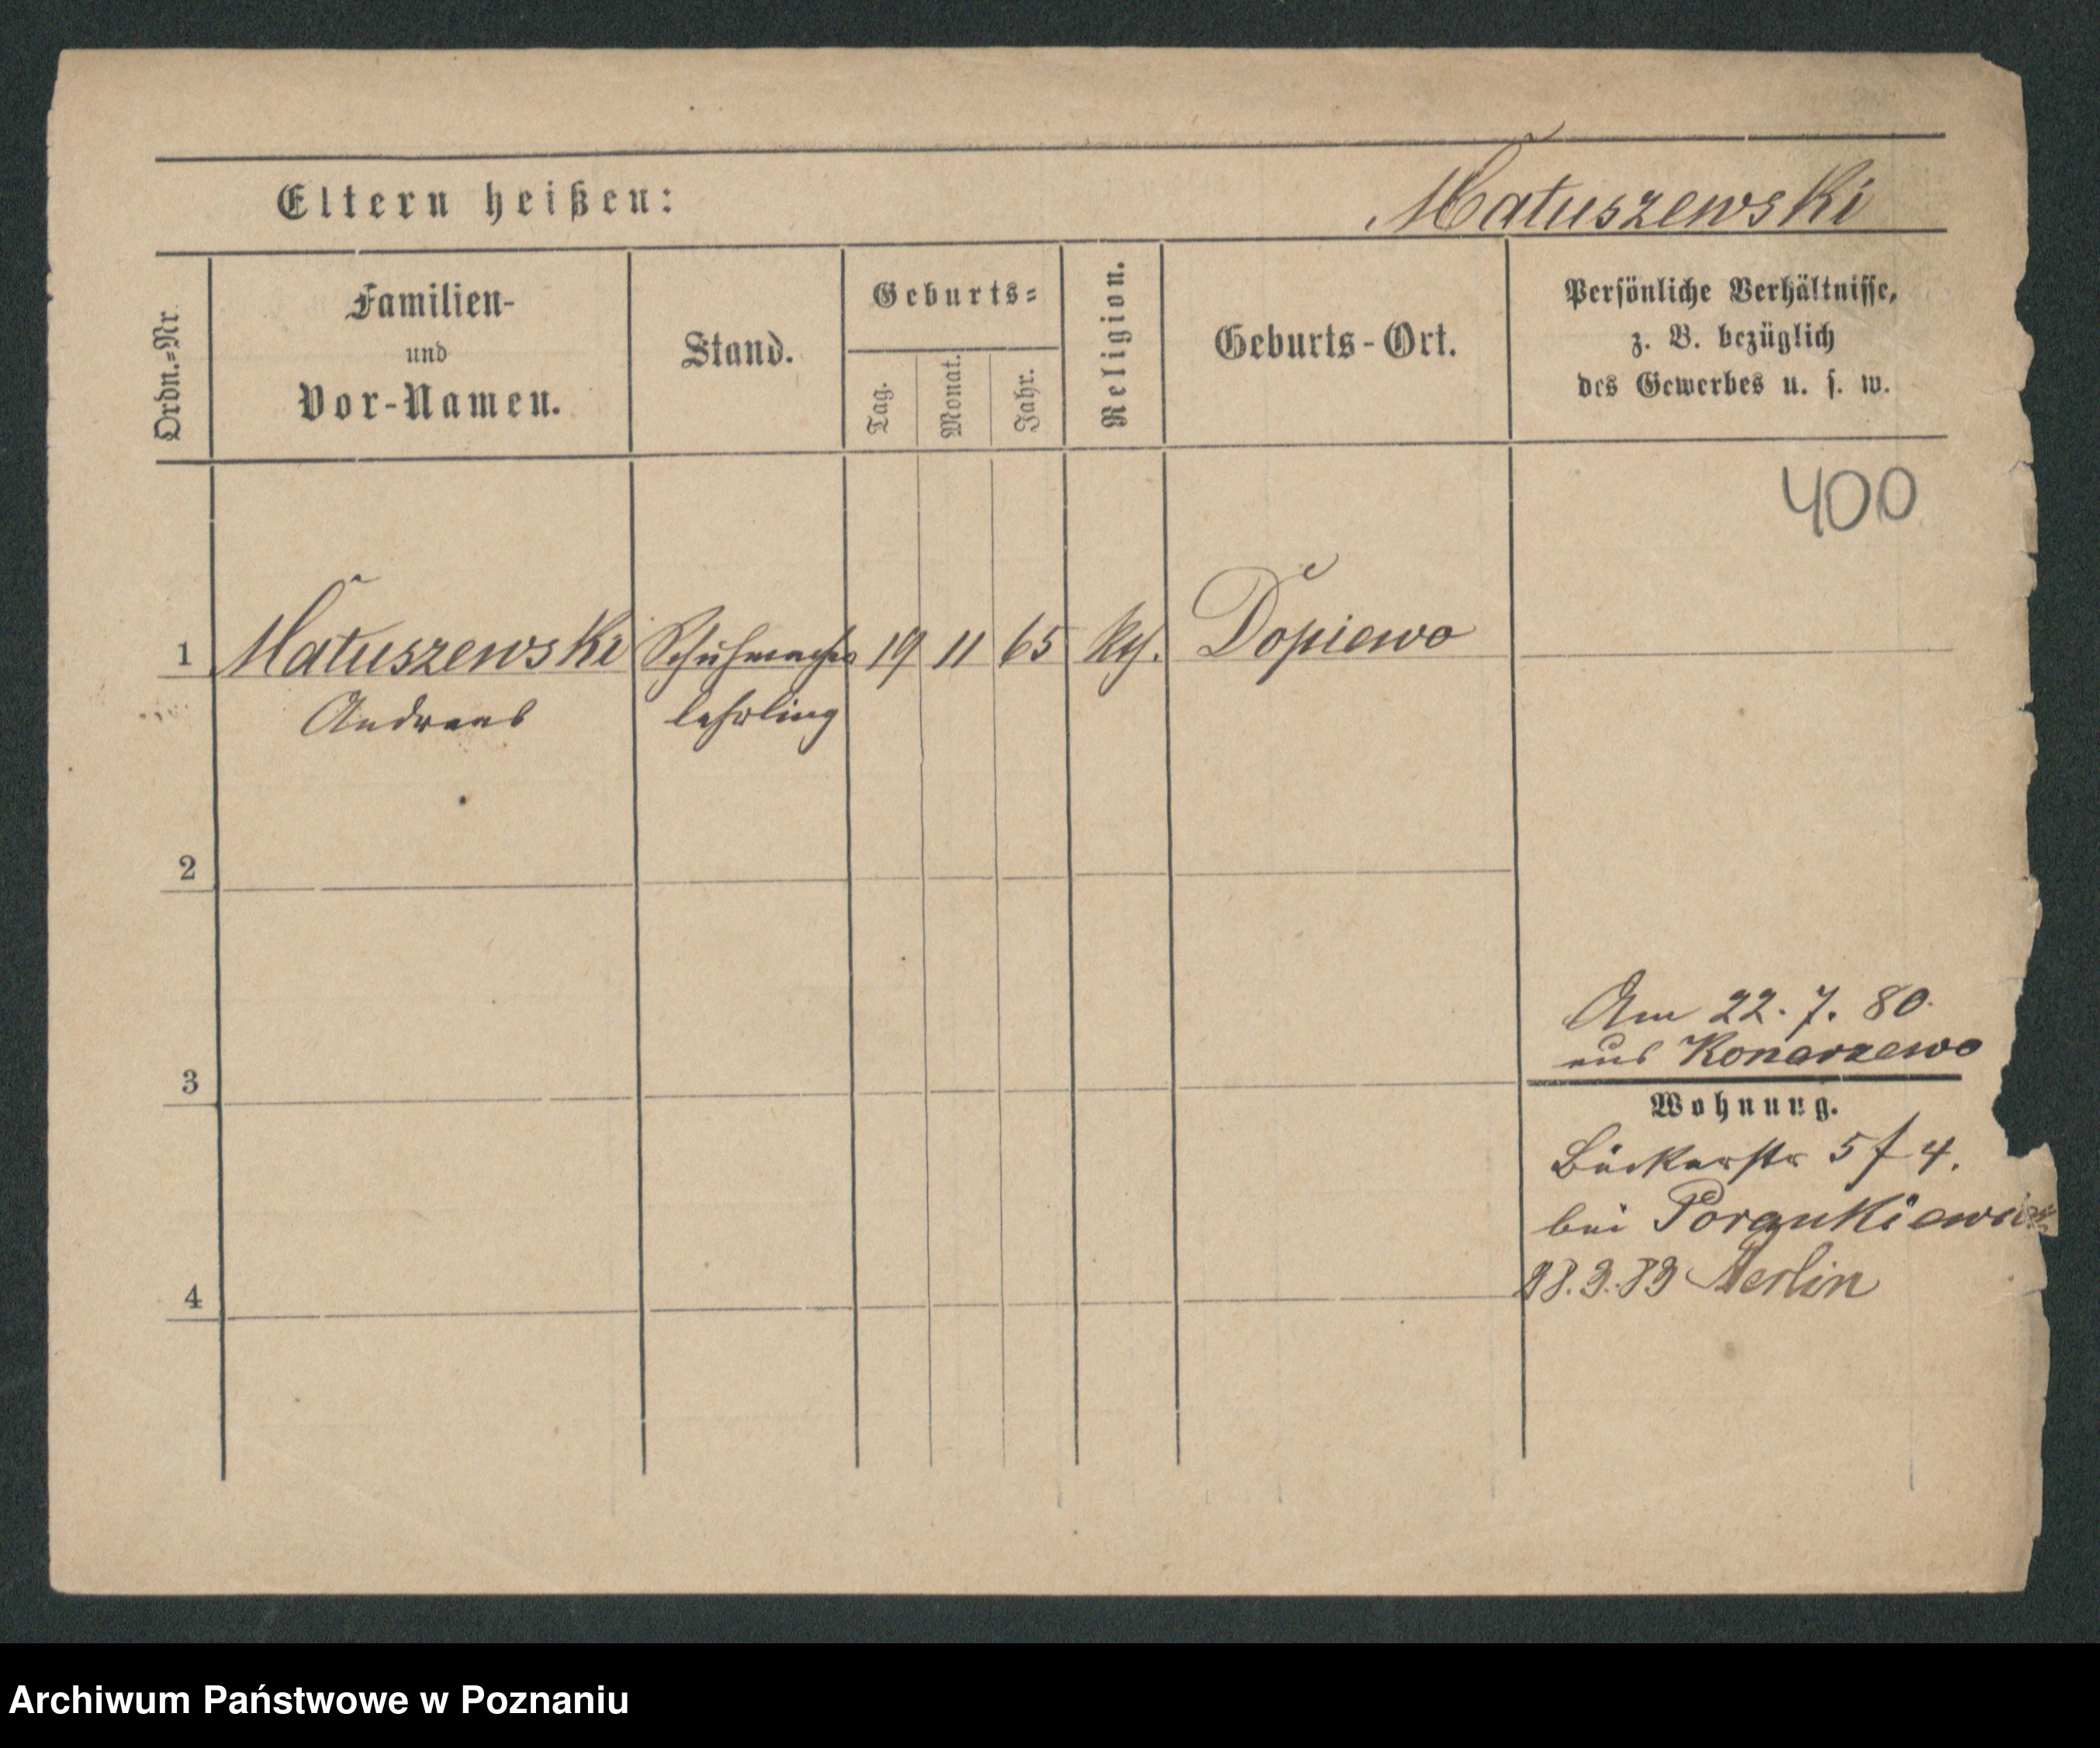 Eltern heißen:
Matuszewski
Ordn.=Nr.
Familien-
und
Vor-Namen.
Stand.
Geburts=
Tag.
Monat.
Jahr.
Religion.
Geburts-Ort.
Persönliche Verhältnisse,
z. B. bezüglich
des Gewerbes u. s. w.
400
1 Matuszewski Schuhmacher 19 11 65 kth. Dopiewo
Andreas lehrling
2
Am 22. 7. 80.
aus Konarzewo
3
Wohnung.
Bäckerstr 5 f 4.
bei
28.3.83 Berlin
4
Archiwum Państwowe w Poznaniu